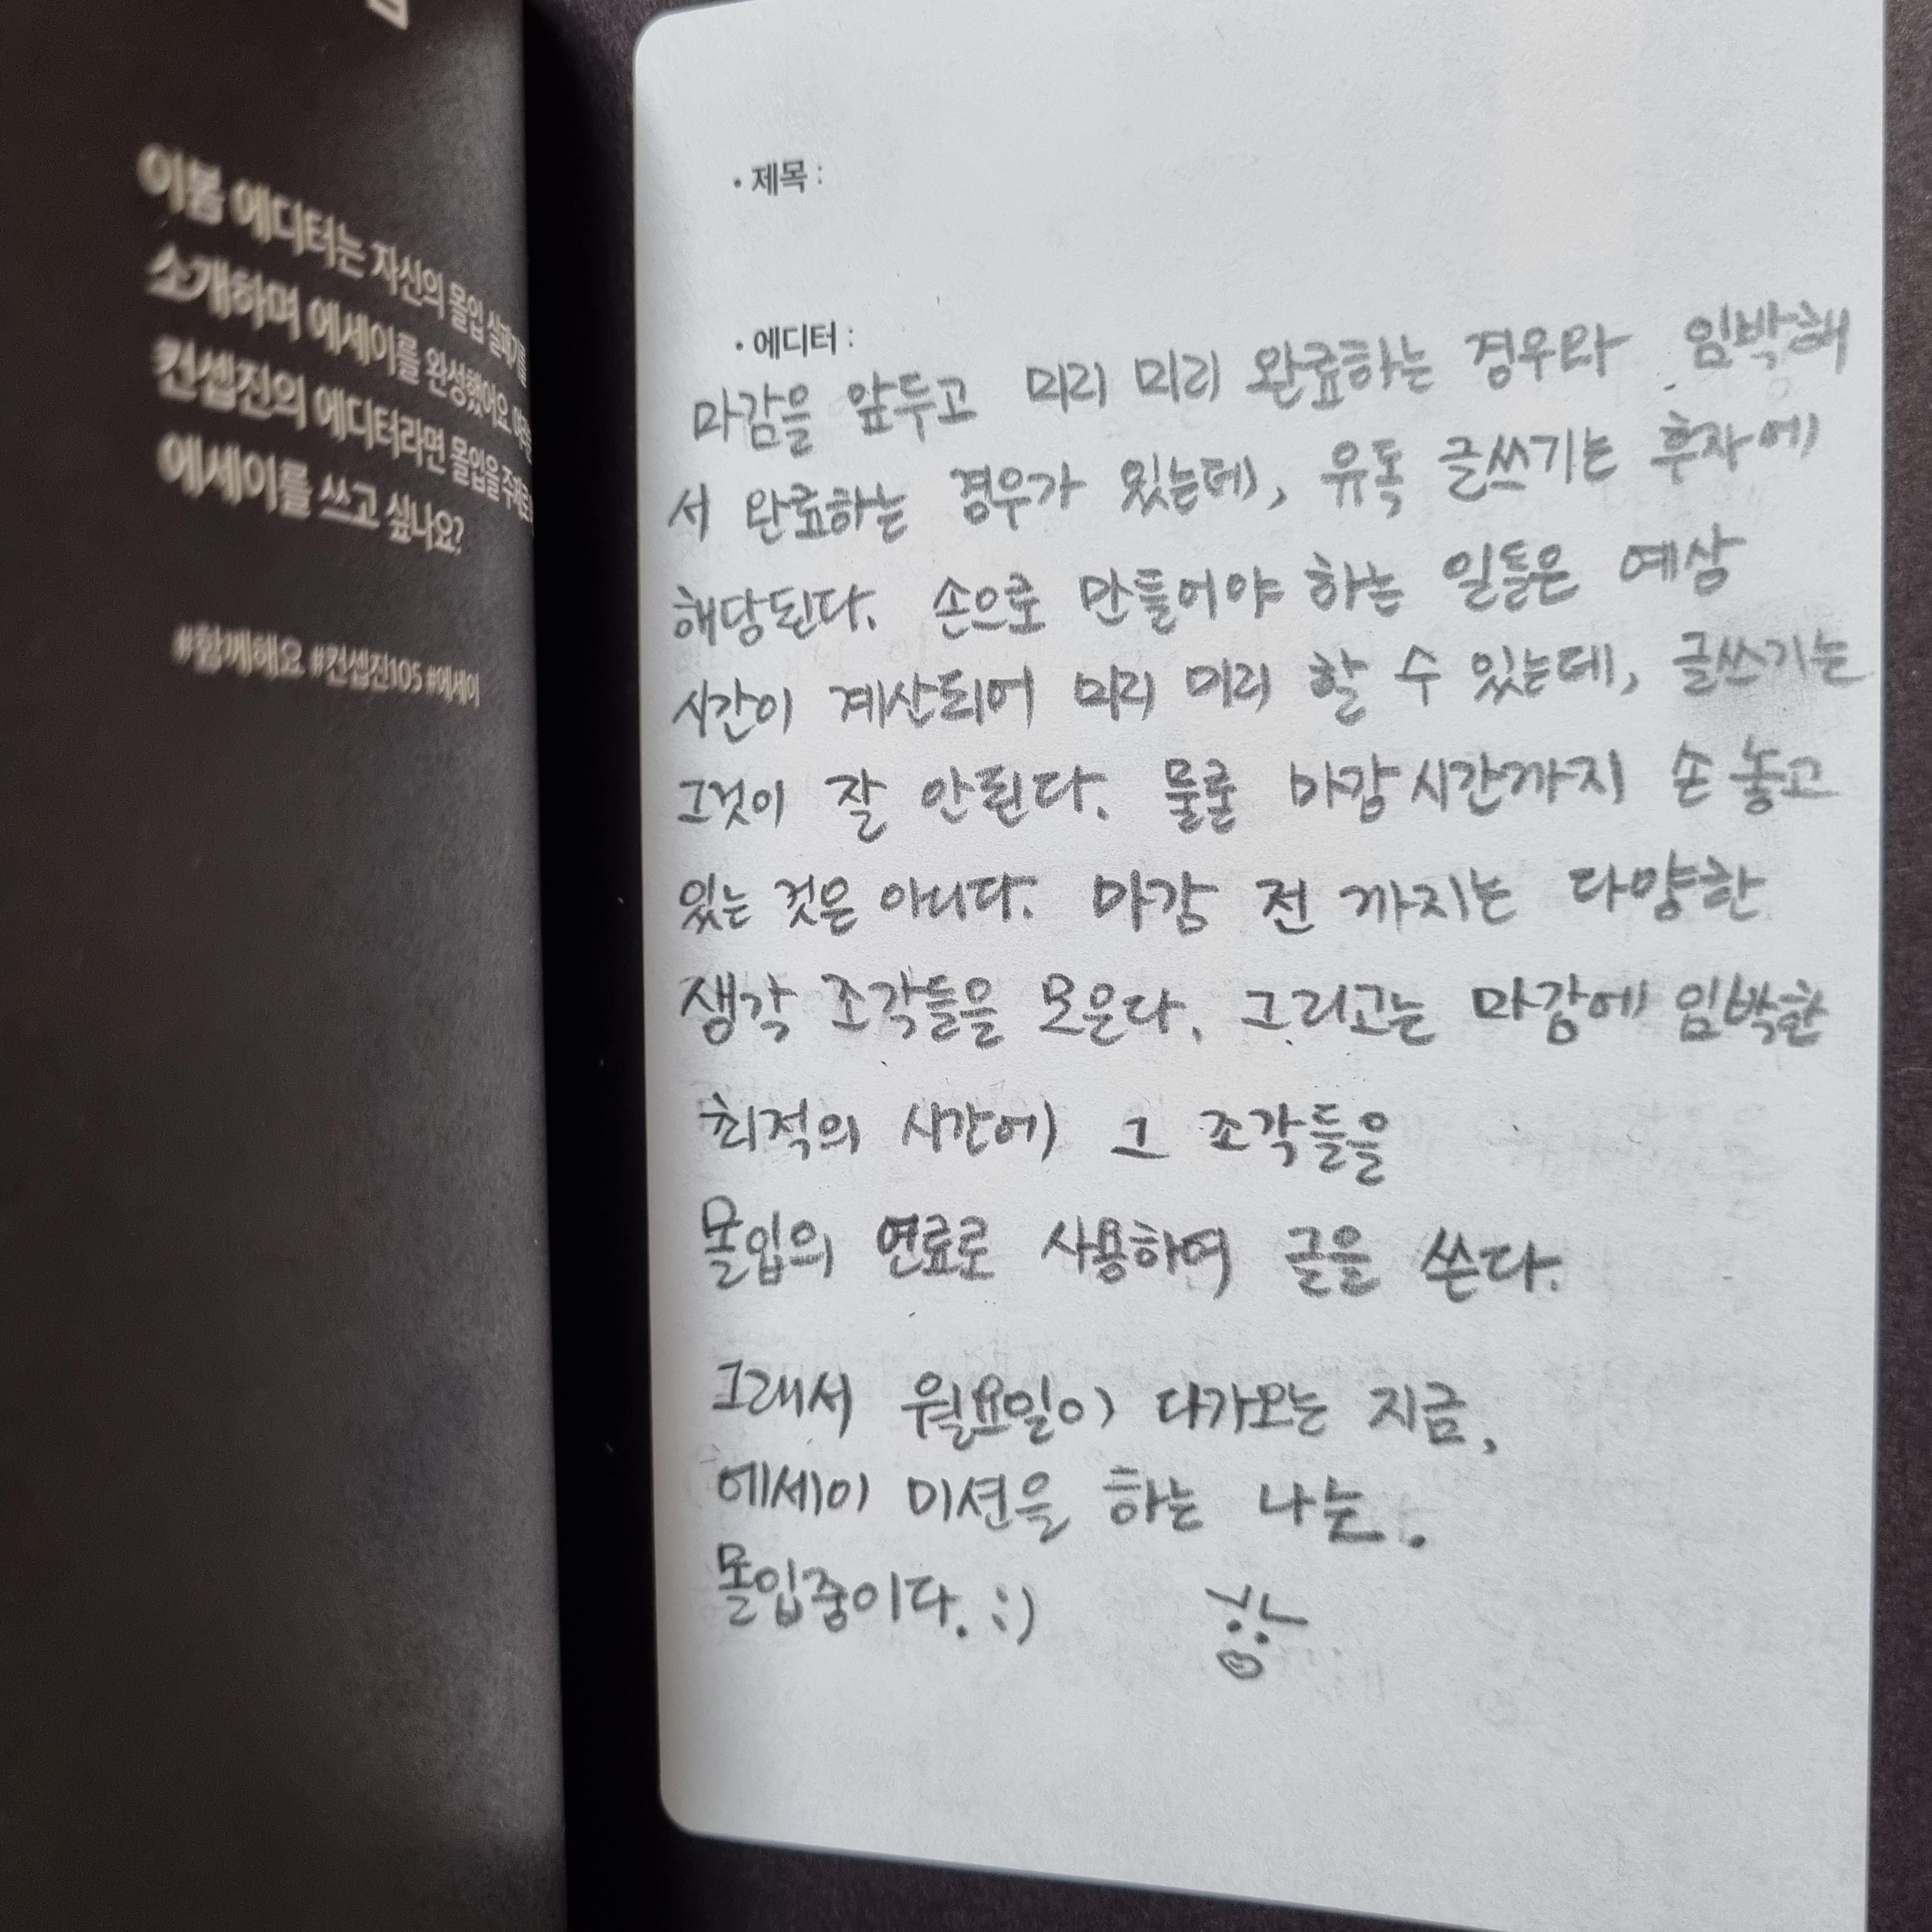 이봄 에디터는 자신의 몰입 실패기를
소개하며 에세이를 완성했어요.
컨셉진의 에디터라면 몰입을 주제로
에세이를 쓰고 싶나요?
#함께해요 #컨셉진105 #에세이
• 제목 :
• 에디터 :
마감을 앞두고 미리 미리 완료하는 경우와 임박해
서 완료하는 경우가 있는데, 유독 글쓰기는 후자에
해당된다. 손으로 만들어야 하는 일들은 예상
시간이 계산되어 미리 미리 할 수 있는데, 글쓰기는
그것이 잘 안된다. 물론 마감시간까지 손 놓고
있는 것은 아니다. 마감 전 까지는 다양한
생각 조각들을 모은다. 그리고는 마감에 임박한
최적의 시간에 그 조각들을
몰입의 연료로 사용하여 글을 쓴다.
그래서 월요일이 다가오는 지금,
에세이 미션을 하는 나는.
몰입중이다. :)